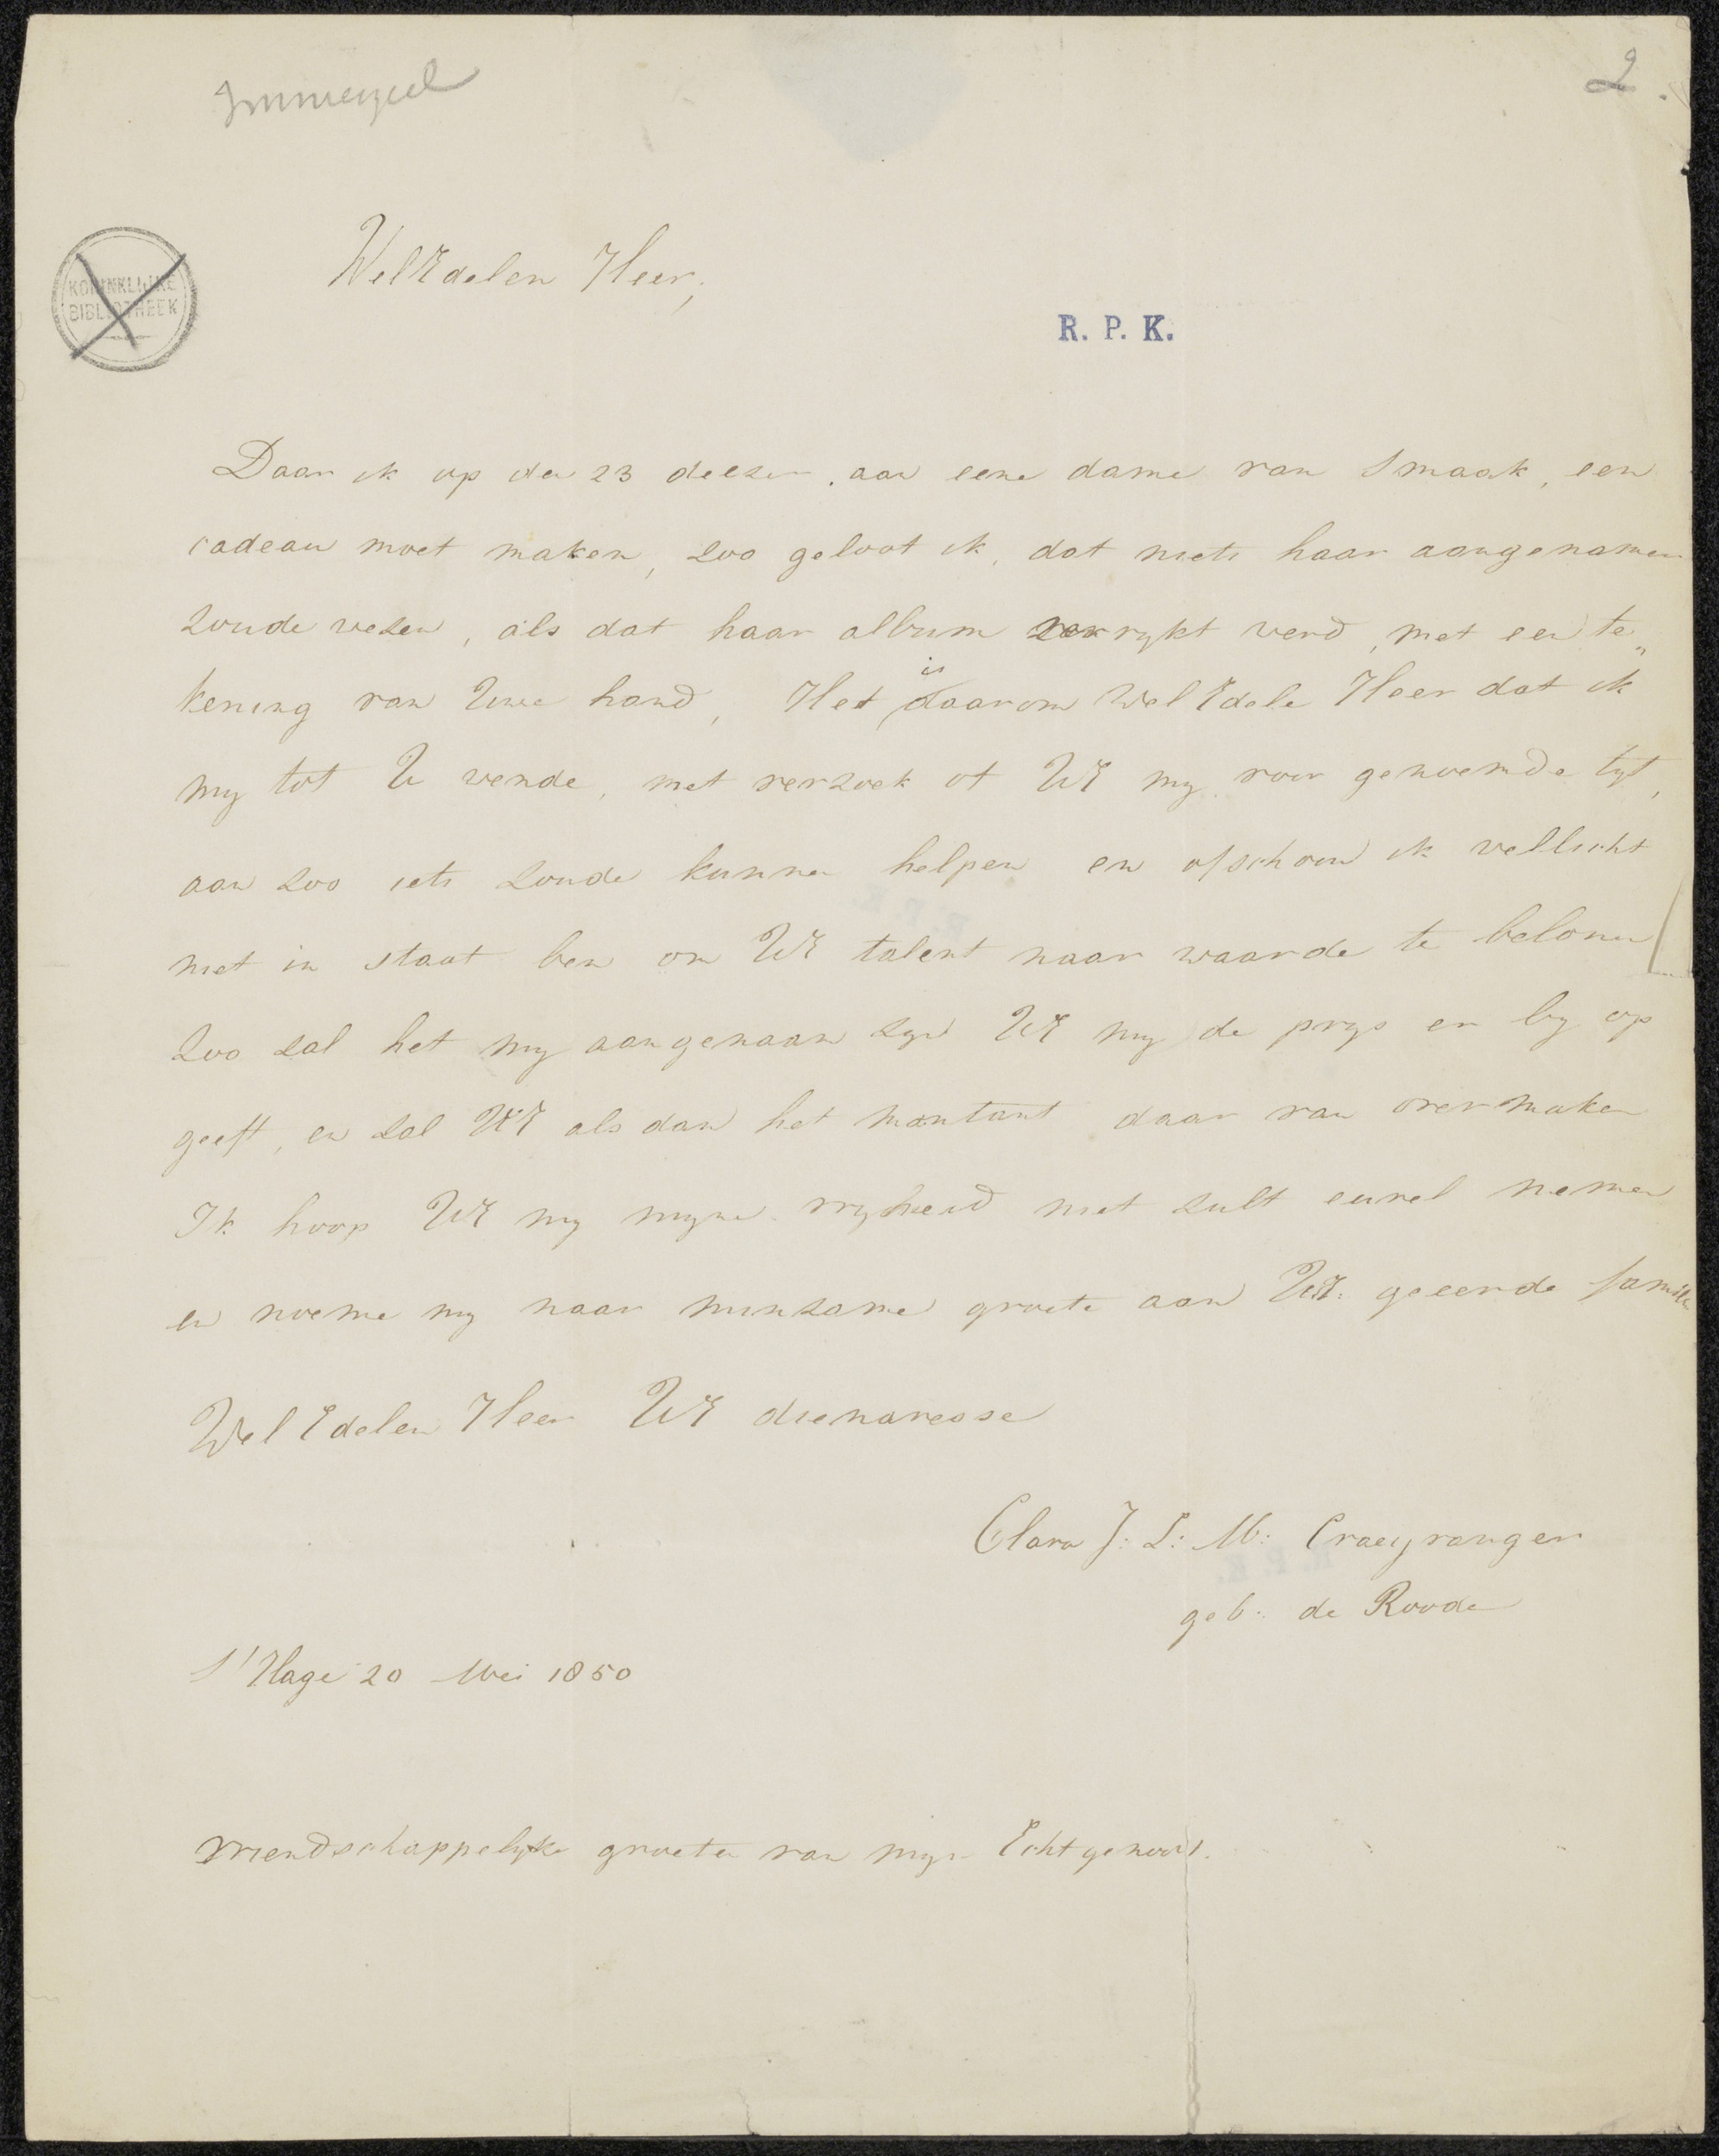 Immerzeel
2.
KONINKLIJKE
BIBLIOTHEEK
WelEdelen Heer,
R. P. K.
Daar ik op den 23 deezer, aan eene dame van smaak, een
cadeau moet maken, zoo geloof ik, dat niets haar aangenamer
zoude wezen, als dat haar album verrykt werd, met een te„
kening van Uwe hand, Het is daarom Wel Edele Heer dat ik
my tot U wende, met verzoek of UE my voor genoemde tyt,
aan zoo iets zoude kunnen helpen en ofschoon ik wellicht
niet in staat ben om UE talent naar waarde te belonen
zoo zal het my aangenaam zyn UE my de prys er by op
geeft, en zal UE als dan het montant daar van overmaken
Ik hoop UE my myne vryheid niet zult euvel nemen
en noeme my naar minzame groete aan UE. geeerde familie
Wel Edelen Heer UE dienaresse
Clara J: L: M: Craeyvanger
geb: de Roode
s'Hage 20 Mei 1850
vriendschappelyke groeten van myn Echtgenoot.